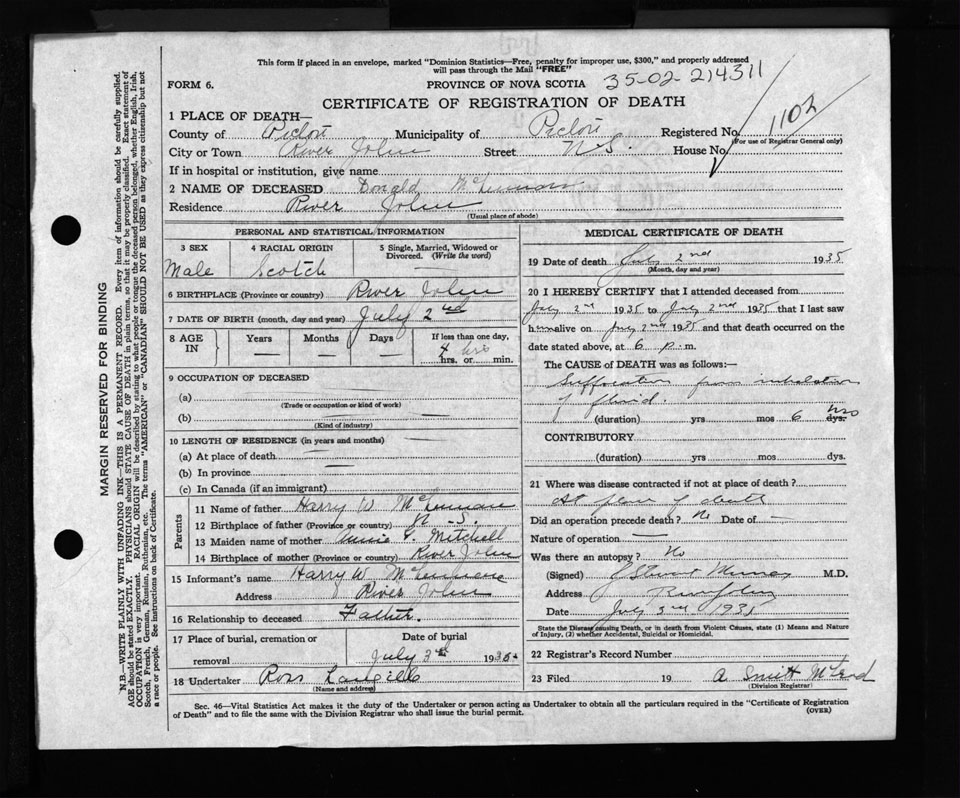 This form if placed in an envelope, marked "Dominion Statistics—Free, penalty for improper use, $300," and properly addressed
will pass through the Mail "FREE"
FORM 6. PROVINCE OF NOVA SCOTIA 35-02-214311
CERTIFICATE OF REGISTRATION OF DEATH
1102
1 PLACE OF DEATH—
County of Pictou Municipality of Pictou Registered No.
(For use of Registrar General only)
City or Town River John Street N.S. House No.
If in hospital or institution, give name
2 NAME OF DECEASED Donald McLennan
Residence River John
(Usual place of abode)
PERSONAL AND STATISTICAL INFORMATION
3 SEX 4 RACIAL ORIGIN 5 Single, Married, Widowed or
Divorced. (Write the word)
Male Scotch —
6 BIRTHPLACE (Province or country) River John
7 DATE OF BIRTH (month, day and year) July 2nd
8 AGE IN Years Months Days If less than one day,
— — — 4 hrs
hrs. or min.
9 OCCUPATION OF DECEASED
(a)
(Trade or occupation or kind of work)
(b) —
(Kind of industry)
10 LENGTH OF RESIDENCE (in years and months)
(a) At place of death
(b) In province —
(c) In Canada (if an immigrant)
Parents
11 Name of father Harry W McLennan
12 Birthplace of father (Province or country) N-S.
13 Maiden name of mother Mitchell
14 Birthplace of mother (Province or country) River John
15 Informant's name Harry W. McLennan
Address River John
16 Relationship to deceased Father.
17 Place of burial, cremation or removal
Date of burial
July 3rd 1935.
18 Undertaker Ross Langille
(Name and address)
MEDICAL CERTIFICATE OF DEATH
19 Date of death July 2nd 1935
(Month, day and year)
20 I HEREBY CERTIFY that I attended deceased from
July 2nd 1935 to July 2nd 1935 that I last saw
him alive on July 2nd 1935 and that death occurred on the
date stated above, at 6 p.m.
The CAUSE of DEATH was as follows:—
Suffocation from inhalation
of fluid.
(duration) yrs mos 6 hrs dys.
CONTRIBUTORY
(duration) yrs mos dys.
21 Where was disease contracted if not at place of death?
At place of death
Did an operation precede death? No Date of —
Nature of operation —
Was there an autopsy? No
(Signed) M.D.
Address
Date July 3rd 1935
State the Disease causing Death, or in death from Violent Causes, state (1) Means and Nature
of Injury, (2) whether Accidental, Suicidal or Homicidal.
22 Registrar's Record Number
23 Filed 19 A Smith McLeod
(Division Registrar)
Sec. 46—Vital Statistics Act makes it the duty of the Undertaker or person acting as Undertaker to obtain all the particulars required in the "Certificate of Registration
of Death" and to file the same with the Division Registrar who shall issue the burial permit. (OVER)
MARGIN RESERVED FOR BINDING
N.B.—WRITE PLAINLY WITH UNFADING INK—THIS IS A PERMANENT RECORD. Every item of information should be carefully supplied.
AGE should be stated EXACTLY. PHYSICIANS should STATE CAUSE OF DEATH in plain terms, so that it may be properly classified. Exact statement of
OCCUPATION is very important. RACIAL ORIGIN will be described by stating to what people or tongue the deceased person belonged, whether English, Irish,
Scotch, French, German, Russian, Ruthenian, etc. The terms "AMERICAN" or "CANADIAN" SHOULD NOT BE USED as they express citizenship but not
a race or people. See instructions on back of Certificate.